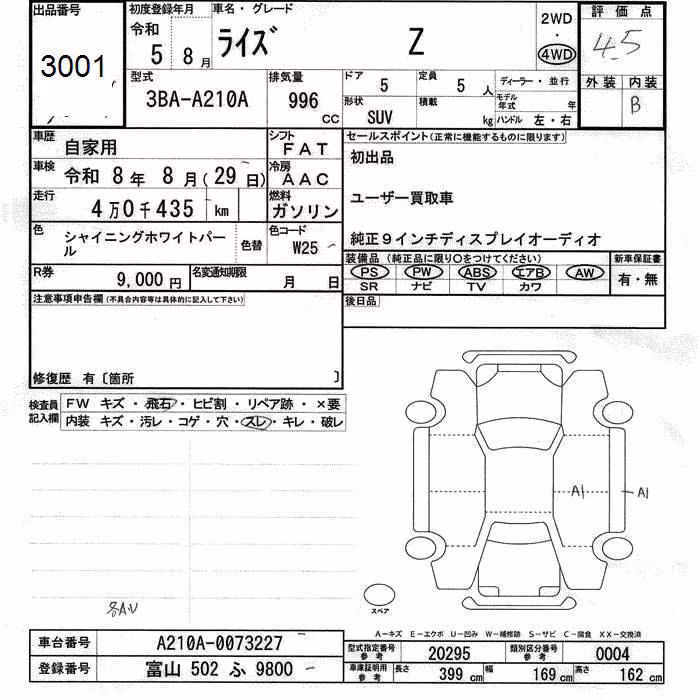 出品番号
3001
初度登録年月
令和
5 8月
車名・グレード
ライズ Z
2WD
・
4WD
評価点
4.5
外装 内装
B
型式
3BA-A210A
排気量
996 CC
ドア 5
定員 5 人
形状 SUV
積載 kg
ディーラー・並行
モデル年式 年
ハンドル 左・右
車歴 自家用
シフト FAT
車検 令和 8年 8月(29日)
冷房 AAC
走行 4万0千435 km
燃料 ガソリン
色 シャイニングホワイトパール
色替
色コード W25
R券 9,000円
名変通知期限 月 日
セールスポイント(正常に機能するものに限ります)
初出品
ユーザー買取車
純正9インチディスプレイオーディオ
装備品(純正品に限り○をつけてください)
PS PW ABS エアB AW
SR ナビ TV カワ
新車保証書
有・無
後日品
注意事項申告欄(不具合内容等は具体的に記入して下さい)
修復歴 有〔箇所 〕
検査員記入欄
FW キズ・飛石・ヒビ割・リペア跡・×要
内装 キズ・汚レ・コゲ・穴・スレ・キレ・破レ
A1 A1
スペア
A－キズ E－エクボ U－凹み W－補修跡 S－サビ C－腐食 XX－交換済
車台番号 A210A-0073227
登録番号 富山 502 ふ 9800
型式指定番号 参考 20295
類別区分番号 参考 0004
車庫証明用 参考 長さ 399 cm 幅 169 cm 高さ 162 cm